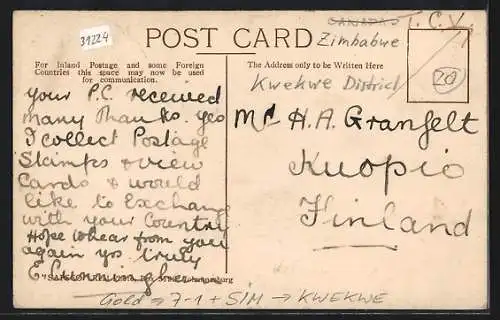 39224
POST CARD
T.C.V.
Zimbabwe
For Inland Postage and some Foreign
Countries this space may now be used
for communication.
The Address only to be Written Here
Kwekwe District
20
your P.C. received
many thanks. yes
I collect Postage
Stamps & view
Cards & would
like to Exchange
with your Country
Hope to hear from you
again yrs truly
E Cunningham
Mr H.A. Granfelt
Kuopio
Finland
Johannesburg
Gold → 7-1 + SIM → KWEKWE